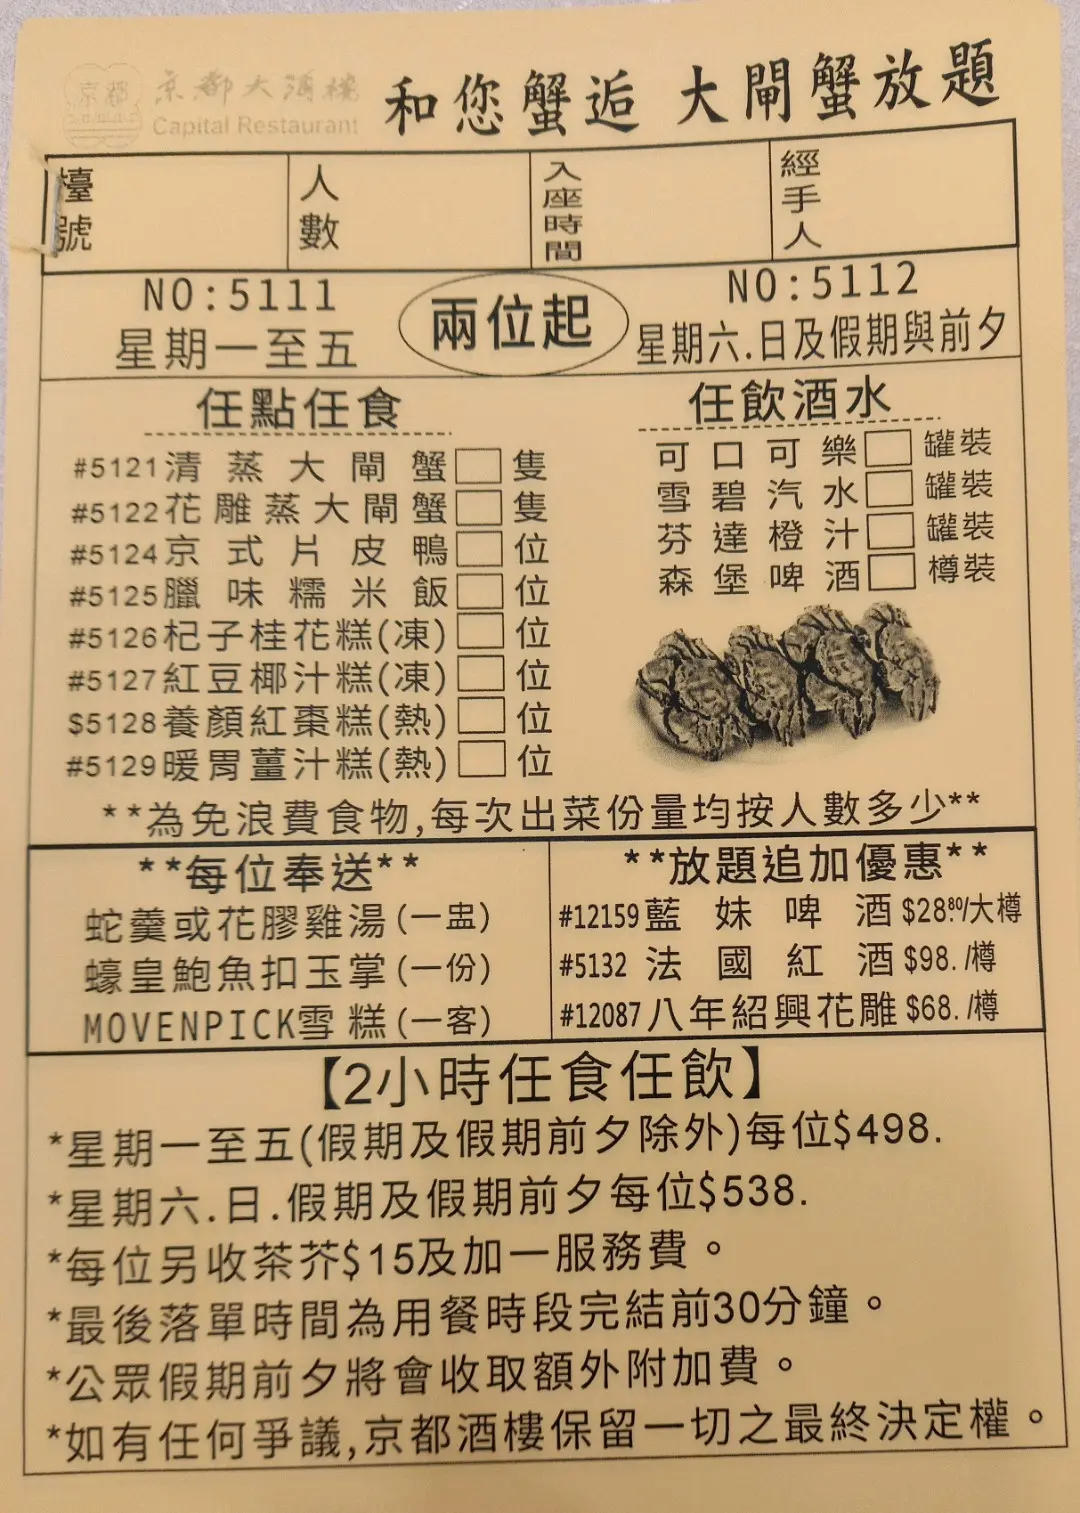 京都
京都大酒樓
Capital Restaurant
和您蟹逅 大閘蟹放題
檯號
人數
入座時間
經手人
NO:5111
星期一至五
兩位起
NO:5112
星期六.日及假期與前夕
任點任食
#5121清蒸大閘蟹 隻
#5122花雕蒸大閘蟹 隻
#5124京式片皮鴨 位
#5125臘味糯米飯 位
#5126杞子桂花糕(凍) 位
#5127紅豆椰汁糕(凍) 位
$5128養顏紅棗糕(熱) 位
#5129暖胃薑汁糕(熱) 位
任飲酒水
可口可樂 罐裝
雪碧汽水 罐裝
芬達橙汁 罐裝
森堡啤酒 樽裝
**為免浪費食物,每次出菜份量均按人數多少**
**每位奉送**
蛇羹或花膠雞湯(一盅)
蠔皇鮑魚扣玉掌(一份)
MOVENPICK雪糕(一客)
**放題追加優惠**
#12159藍妹啤酒 $28.80/大樽
#5132 法國紅酒 $98./樽
#12087八年紹興花雕 $68./樽
【2小時任食任飲】
*星期一至五(假期及假期前夕除外)每位$498.
*星期六.日.假期及假期前夕每位$538.
*每位另收茶芥$15及加一服務費。
*最後落單時間為用餐時段完結前30分鐘。
*公眾假期前夕將會收取額外附加費。
*如有任何爭議,京都酒樓保留一切之最終決定權。